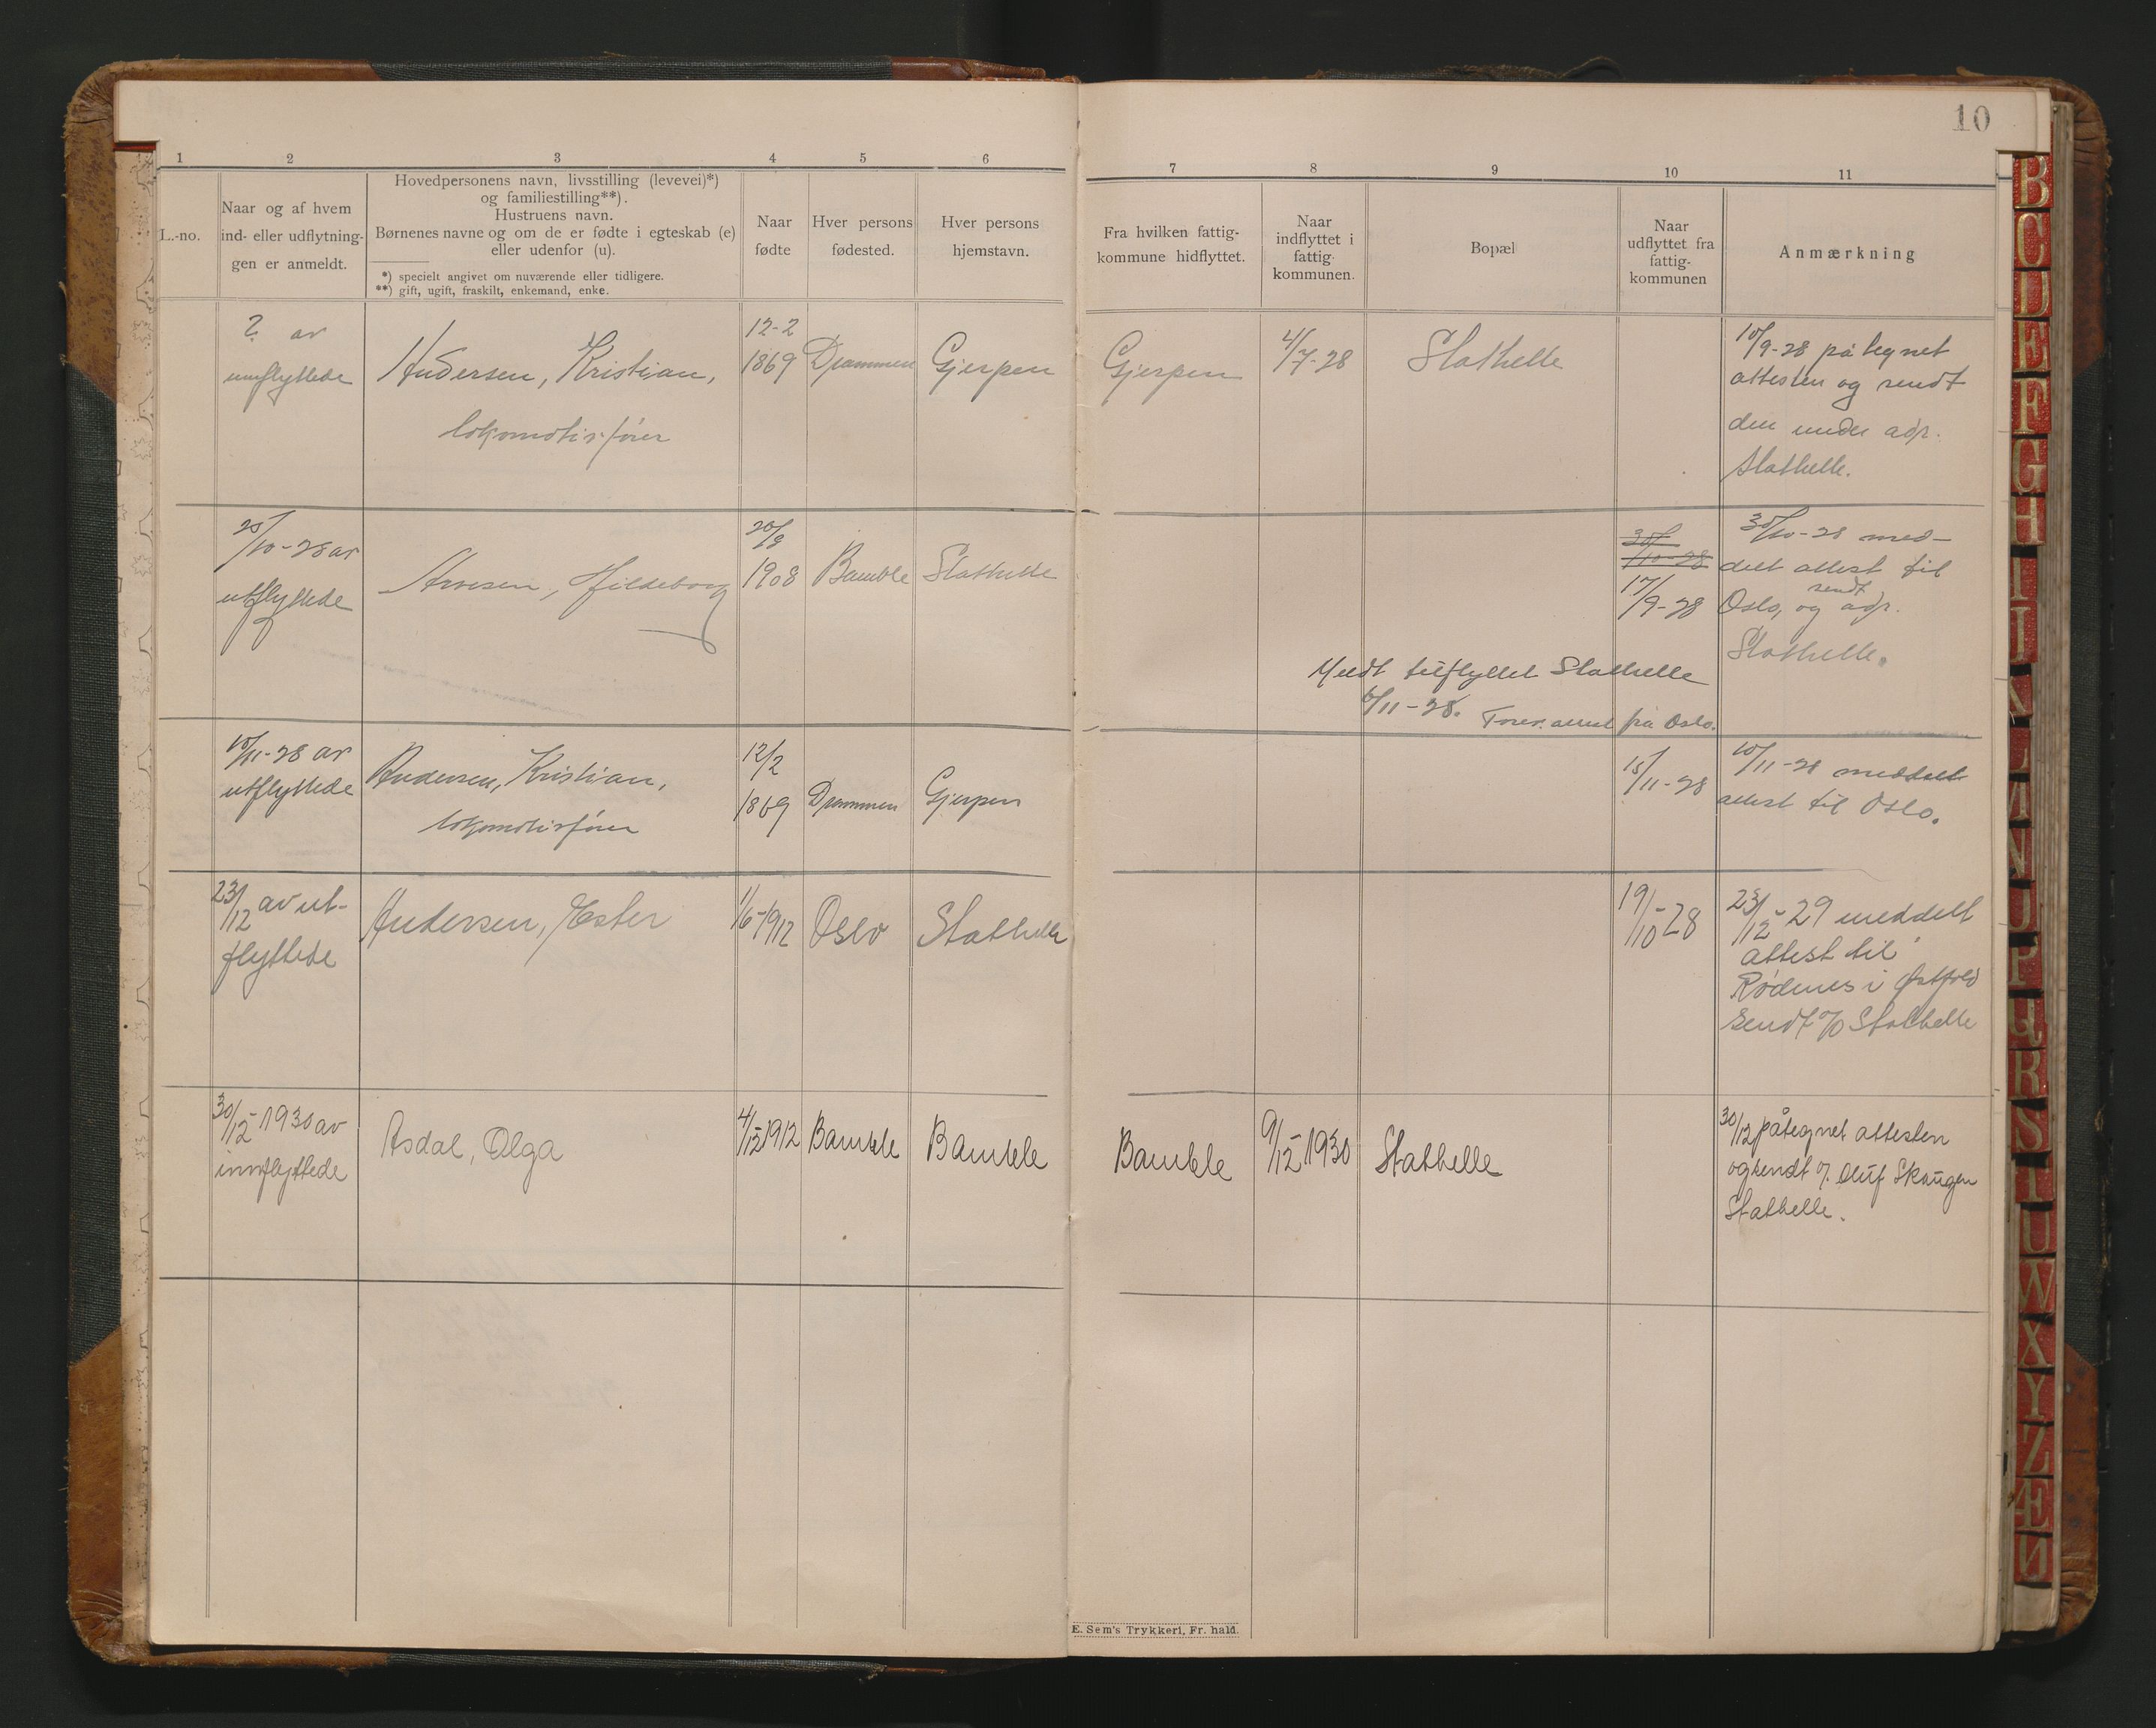 10
1
2
3
4
5
6
7
8
9
10
11
L.-no.
Naar og af hvem
ind- eller udflytnin-
gen er anmeldt.
Hovedpersonens navn, livsstilling (levevei)*)
og familiestilling**).
Hustruens navn.
Børnenes navne og om de er fødte i egteskab (e)
eller udenfor (u).
*) specielt angivet om nuværende eller tidligere.
**) gift, ugift, fraskilt, enkemand, enke.
Naar
fødte
Hver persons
fødested.
Hver persons
hjemstavn.
Fra hvilken fattig-
kommune hidflyttet.
Naar
indflyttet i
fattig-
kommunen.
Bopæl
Naar
udflyttet fra
fattig-
kommunen
Anmærkning
? av
innflyttede
Andersen, Kristian,
lokomotivfører
12-2
1869
Drammen
Gjerpen
Gjerpen
4/7-28
Stathelle
10/9-28 påtegnet
attesten og sendt
den under adr.
Stathelle.
25/10-28 av
utflyttede
Arvesen, Hildeborg
20/9
1908
Bamble
Stathelle
30/10-28
17/9-28
30/10-28 med-
delt attest til
Oslo, og sendt adr.
Stathelle.
Meldt tilflyttet Stathelle
6/11-28. Forev. attest fra Oslo.
10/11-28 av
utflyttede
Andersen, Kristian,
lokomotivfører
12/2
1869
Drammen
Gjerpen
15/11-28
10/11-28 meddelt
attest til Oslo.
23/12 av ut-
flyttede
Andersen, Ester
1/6-1912
Oslo
Stathelle
19/10-28
23/12-29 meddelt
attest til
Rødenes i Østfold
sendt c/o Stathelle
30/12-1930 av
innflyttede
Asdal, Olga
4/12-1912
Bamble
Bamble
Bamble
9/12-1930
Stathelle
30/12 påtegnet attesten
og sendt
Oluf Skaugen
Stathelle.
E. Sem's Trykkeri, Fr. hald.
B
C
D
E
F
G
H
I
J
K
L
M
N
O
P
Q
R
S
T
U
W
X
Y
Z
Æ
Ø